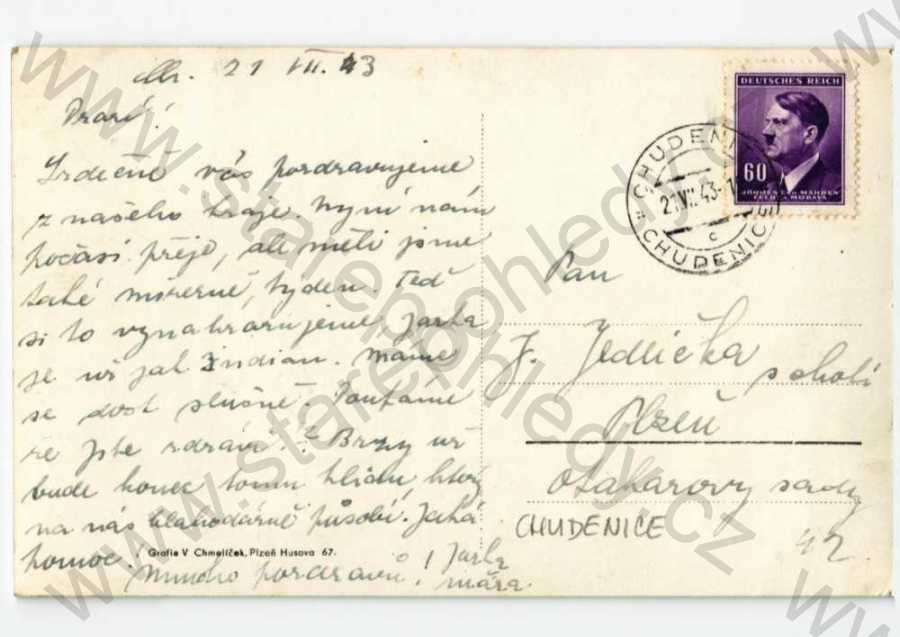 21 VII. 43
Drazí!
Srdečně vás pozdravujeme
z našeho kraje. Nyní nám
počasí přeje, ale měli jsme
také mizerně, týden. Teď
si to vynahrazujeme, Jarka
je už jak Indian. Máme
se dost slušně. Doufáme
že jste zdrávi!? Brzy už
bude konec tomu klidu, který
na nás blahodárně působí. Jaká
pomoc.
Mnoho pozdravů! Jarka
Mára.
Grafie V Chmelíček, Plzeň Husova 67.
DEUTSCHES REICH
60
BÖHMEN u. MÄHREN
ČECHY a MORAVA
CHUDENICE
21.VII.43-1
c
CHUDENICE
Pan
J. Jedlička
s chotí
Plzeň
Otakarovy sady
42
CHUDENICE
www.starepohledy.cz
www.starepohledy.cz